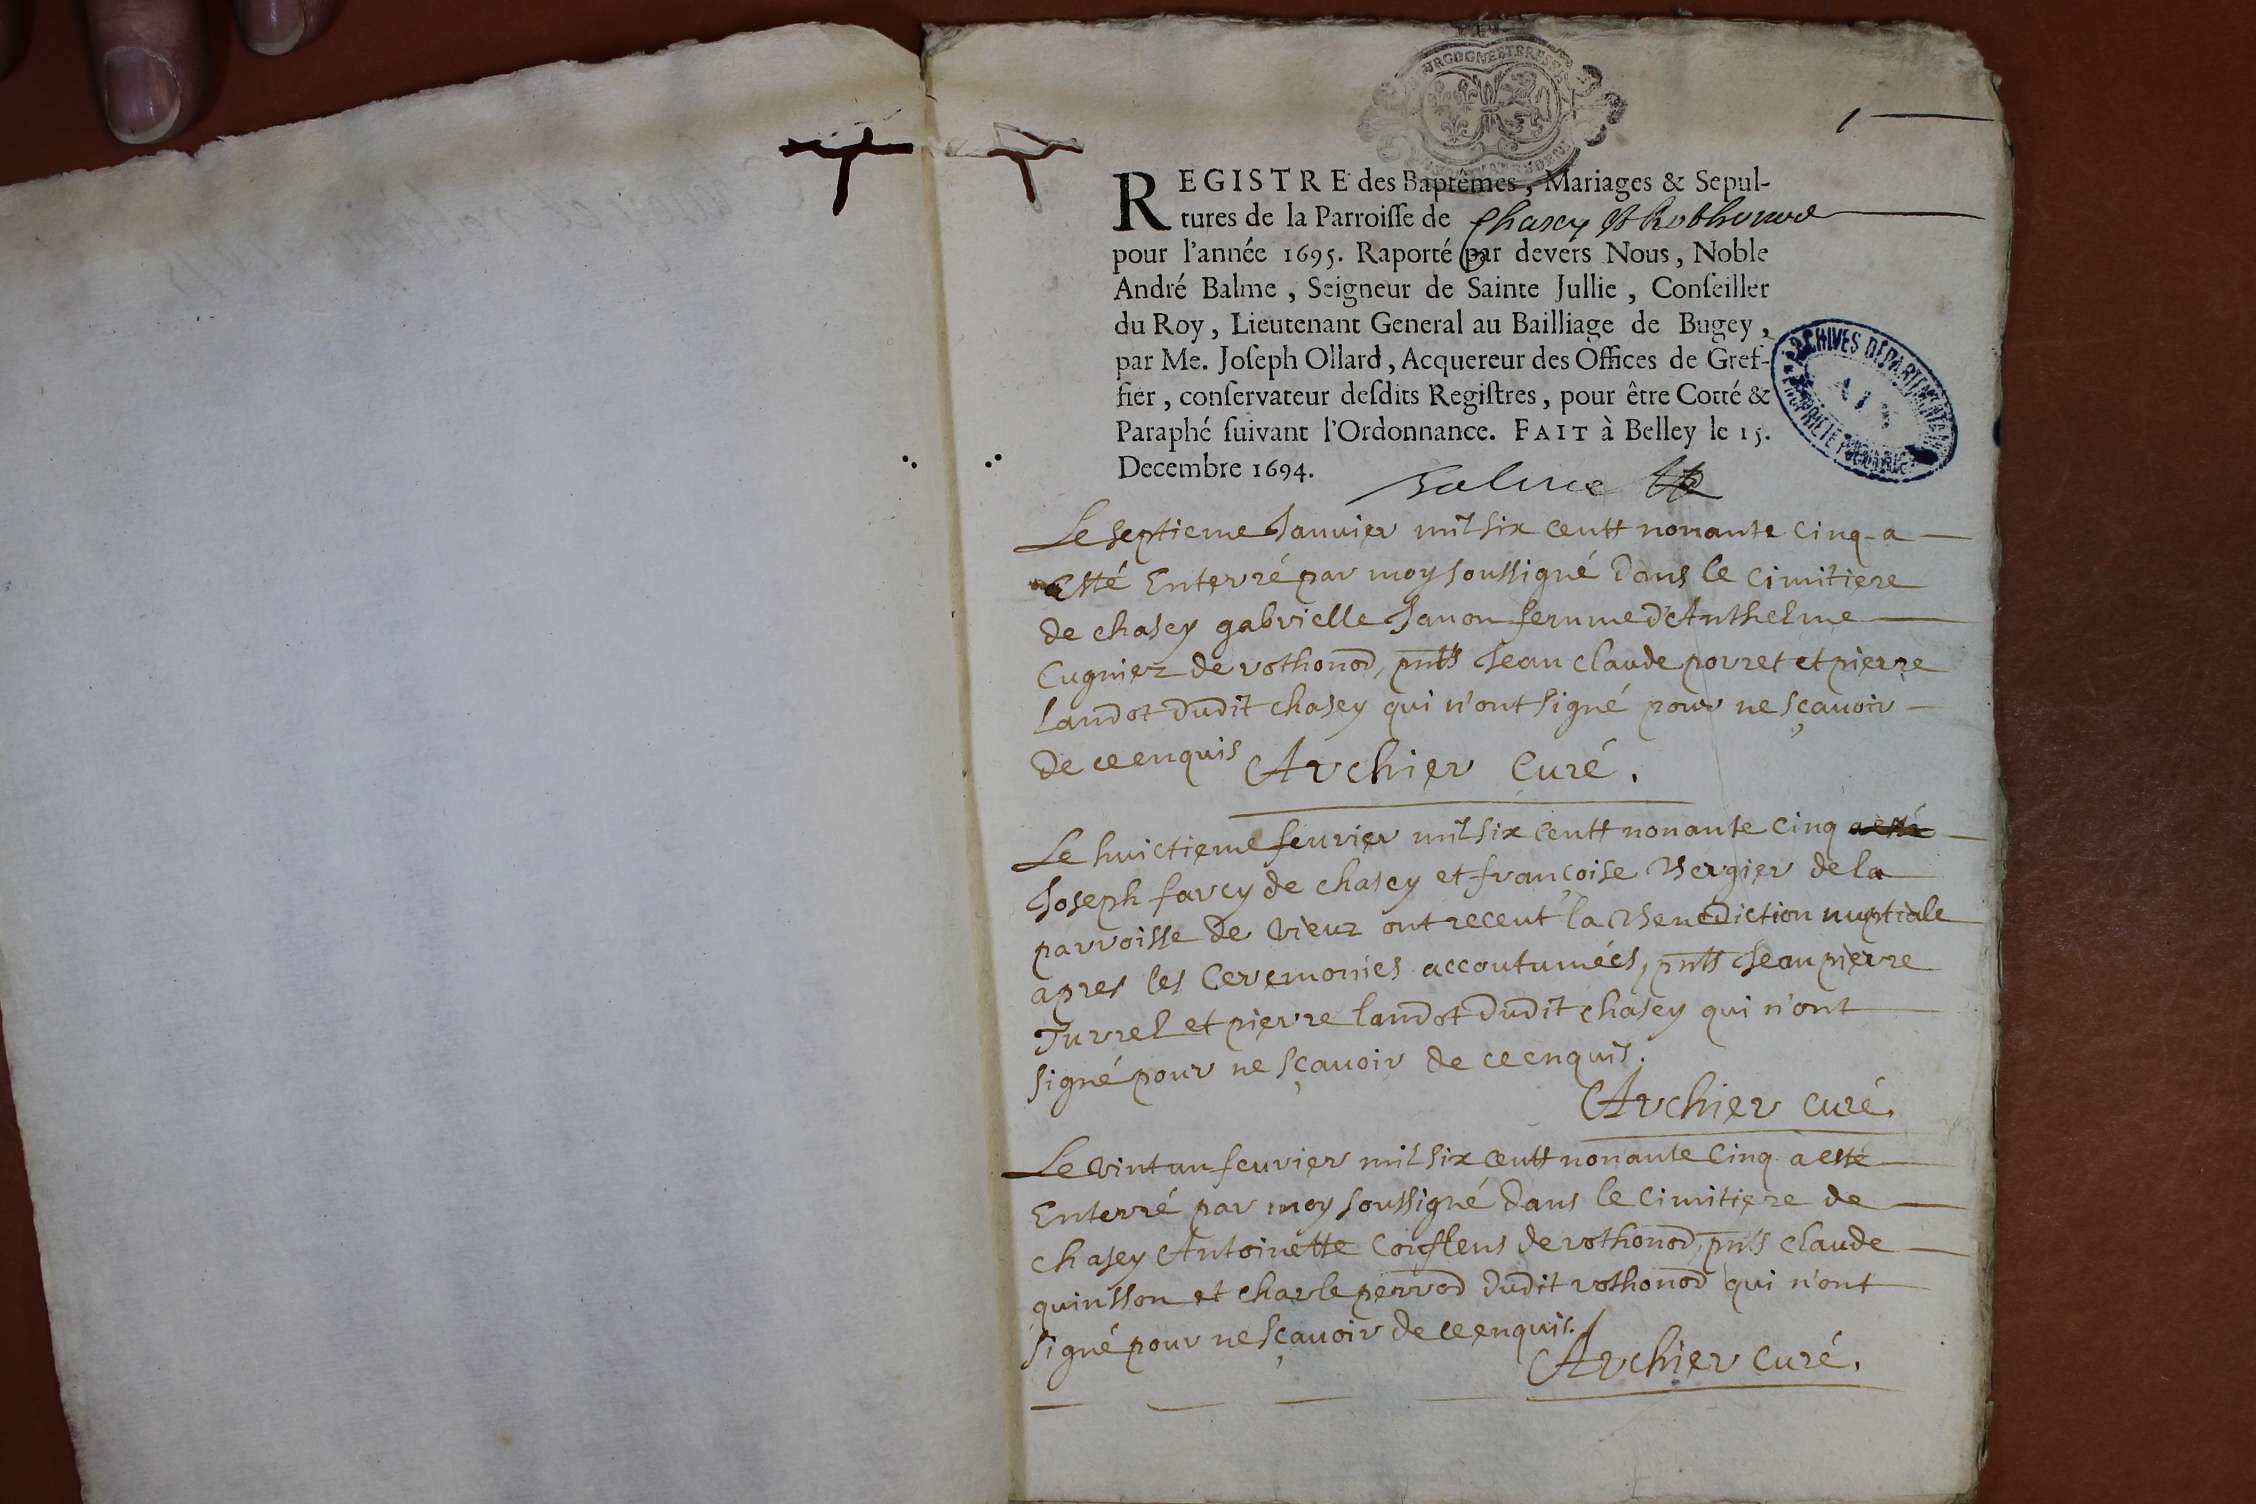 1
REGISTRE des Baptêmes, Mariages & Sepul-
tures de la Parroisse de Chasey & Rothonod
pour l'année 1695. Raporté par devers Nous, Noble
André Balme, Seigneur de Sainte Jullie, Conseiller
du Roy, Lieutenant General au Bailliage de Bugey,
par Me. Joseph Ollard, Acquereur des Offices de Gref-
fier, conservateur desdits Registres, pour être Cotté &
Paraphé suivant l'Ordonnance. FAIT à Belley le 15.
Decembre 1694.
Balme
ARCHIVES DÉPARTEMENTALES
AIN
PROPRIÉTÉ PUBLIQUE
Le septieme Januier mil six centt nonante cinq a
esté Enterré par moy soussigné dans le cimitiere
de chasey gabrielle Janon femme d'Anthelme
Cugniez de rothonod, pnts Jean claude porret et pierre
Landot dudit chasey qui n'ont signé pour ne sçauoir
de ce enquis Archier Curé.
Le huictieme feurier mil six centt nonante cinq
Joseph farcy de chasey et françoise Bergier de la
parroisse de vieuz ont receut la Benediction nuptiale
apres les Ceremonies accoutumées, pnts Jean pierre
Turrel et pierre landot dudit chasey qui n'ont
signé pour ne sçauoir de ce enquis.
Archier curé.
Le vint un feurier mil six centt nonante Cinq a esté
Enterré par moy soussigné dans le cimitiere de
chasey Antoinette Conflens de rothonod, pnts claude
quinsson et charle perrod dudit rothonod qui n'ont
signé pour ne sçauoir de ce enquis.
Archier curé.